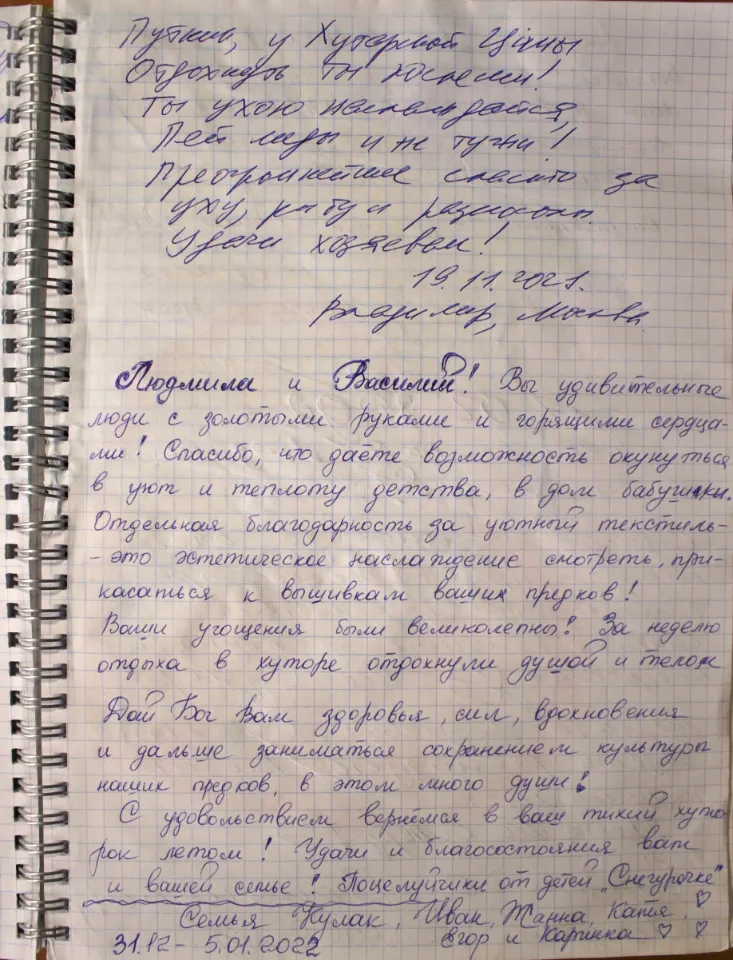 Путник, у Хуторской Цiшы
Отдохнуть ты поспеши!
Ты ухою наслаждайся,
Пей меды и не тужи!
Преогромнейшее спасибо за
уху, рыбу и разносолы
Удачи хозяевам!
19.11.2021.
Владимир, Москва.
Людмила и Василий! Вы удивительные
люди с золотыми руками и горящими сердца-
ми! Спасибо, что даёте возможность окунуться
в уют и теплоту детства, в дом бабушки.
Отдельная благодарность за уютный текстиль-
-это эстетическое наслаждение смотреть, при-
касаться к вышивкам ваших предков!
Ваши угощения были великолепны! За неделю
отдыха в хуторе отдохнули душой и телом
Дай Бог Вам здоровья, сил, вдохновения
и дальше заниматься сохранением культуры
наших предков, в этом много души!
С удовольствием вернёмся в ваш тихий хуто-
рок летом! Удачи и благосостояния вам
и вашей семье! Поцелуйчики от детей "Снегурочке"
Семья Кулак, Иван, Жанна, Катя,
Егор и Каринка ♡ ♡ ♡
31.12 - 5.01.2022